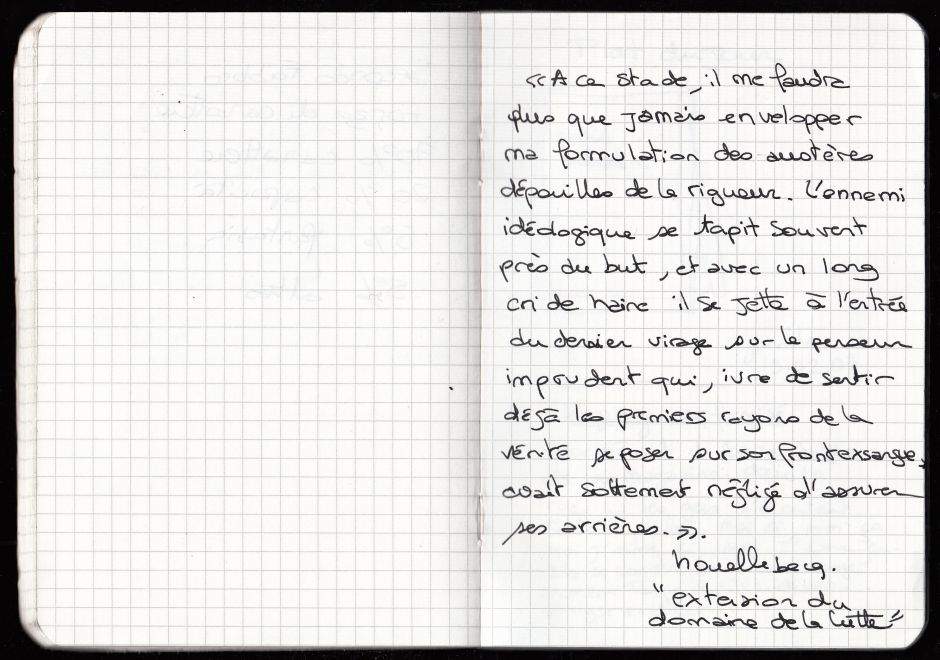 « A ce stade, il me faudra
plus que jamais envelopper
ma formulation des austères
dépouilles de la rigueur. L'ennemi
idéologique se tapit souvent
près du but, et avec un long
cri de haine il se jette à l'entrée
du dernier virage sur le penseur
imprudent qui, ivre de sentir
déjà les premiers rayons de la
vérité se poser sur son front exsangue,
avait sottement négligé d'assurer
ses arrières. ».
houellebecq.
"extension du
domaine de la lutte"